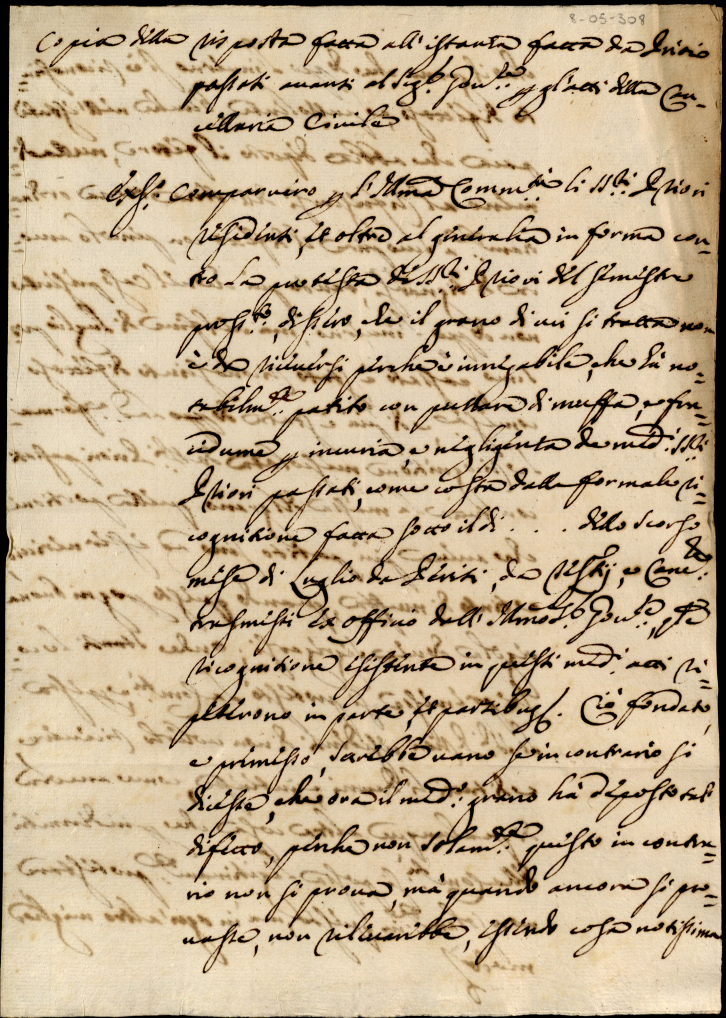 8-05-308
Copia della risposta fatta all'istanza fatta da Priori
passati auanti al Sig.r Gou.re p gl'atti della Can=
cellaria Ciuile
Ex.s Comparuero p l'Illma Comm.tà li SS.ri Priori
residenti, et oltre al generalia in forma con=
tro la protesta de SS.ri Priori del semestre
pross.to, dissero, che il grano di cui si tratta non
è da riceuersi perche è innegabile, che hà no=
tabilm.te patito con puzzare di muffa, e fra=
cidume p incuria, e negligenza de med.i SS.ri
Priori passati, come costa dalla formale ri=
cognitione fatta sotto il dì . . . dello scorso
mese di Luglio da Periti, da Testij, e Canc.re
trasmessi ex officio dall' Illmo S.r Gou.re,
ricognitione esistente in questi med.i atti ri=
peterono in parte, et partibus. Ciò fondato,
e premesso, sarebbe uano se in contrario si
dicesse, che ora il med.o grano hà deposto tal
difetto, perche non solam.te questo in contra=
rio non si proua, mà quando ancora si pro=
uasse, non rileuarebbe, essendo cosa notissima